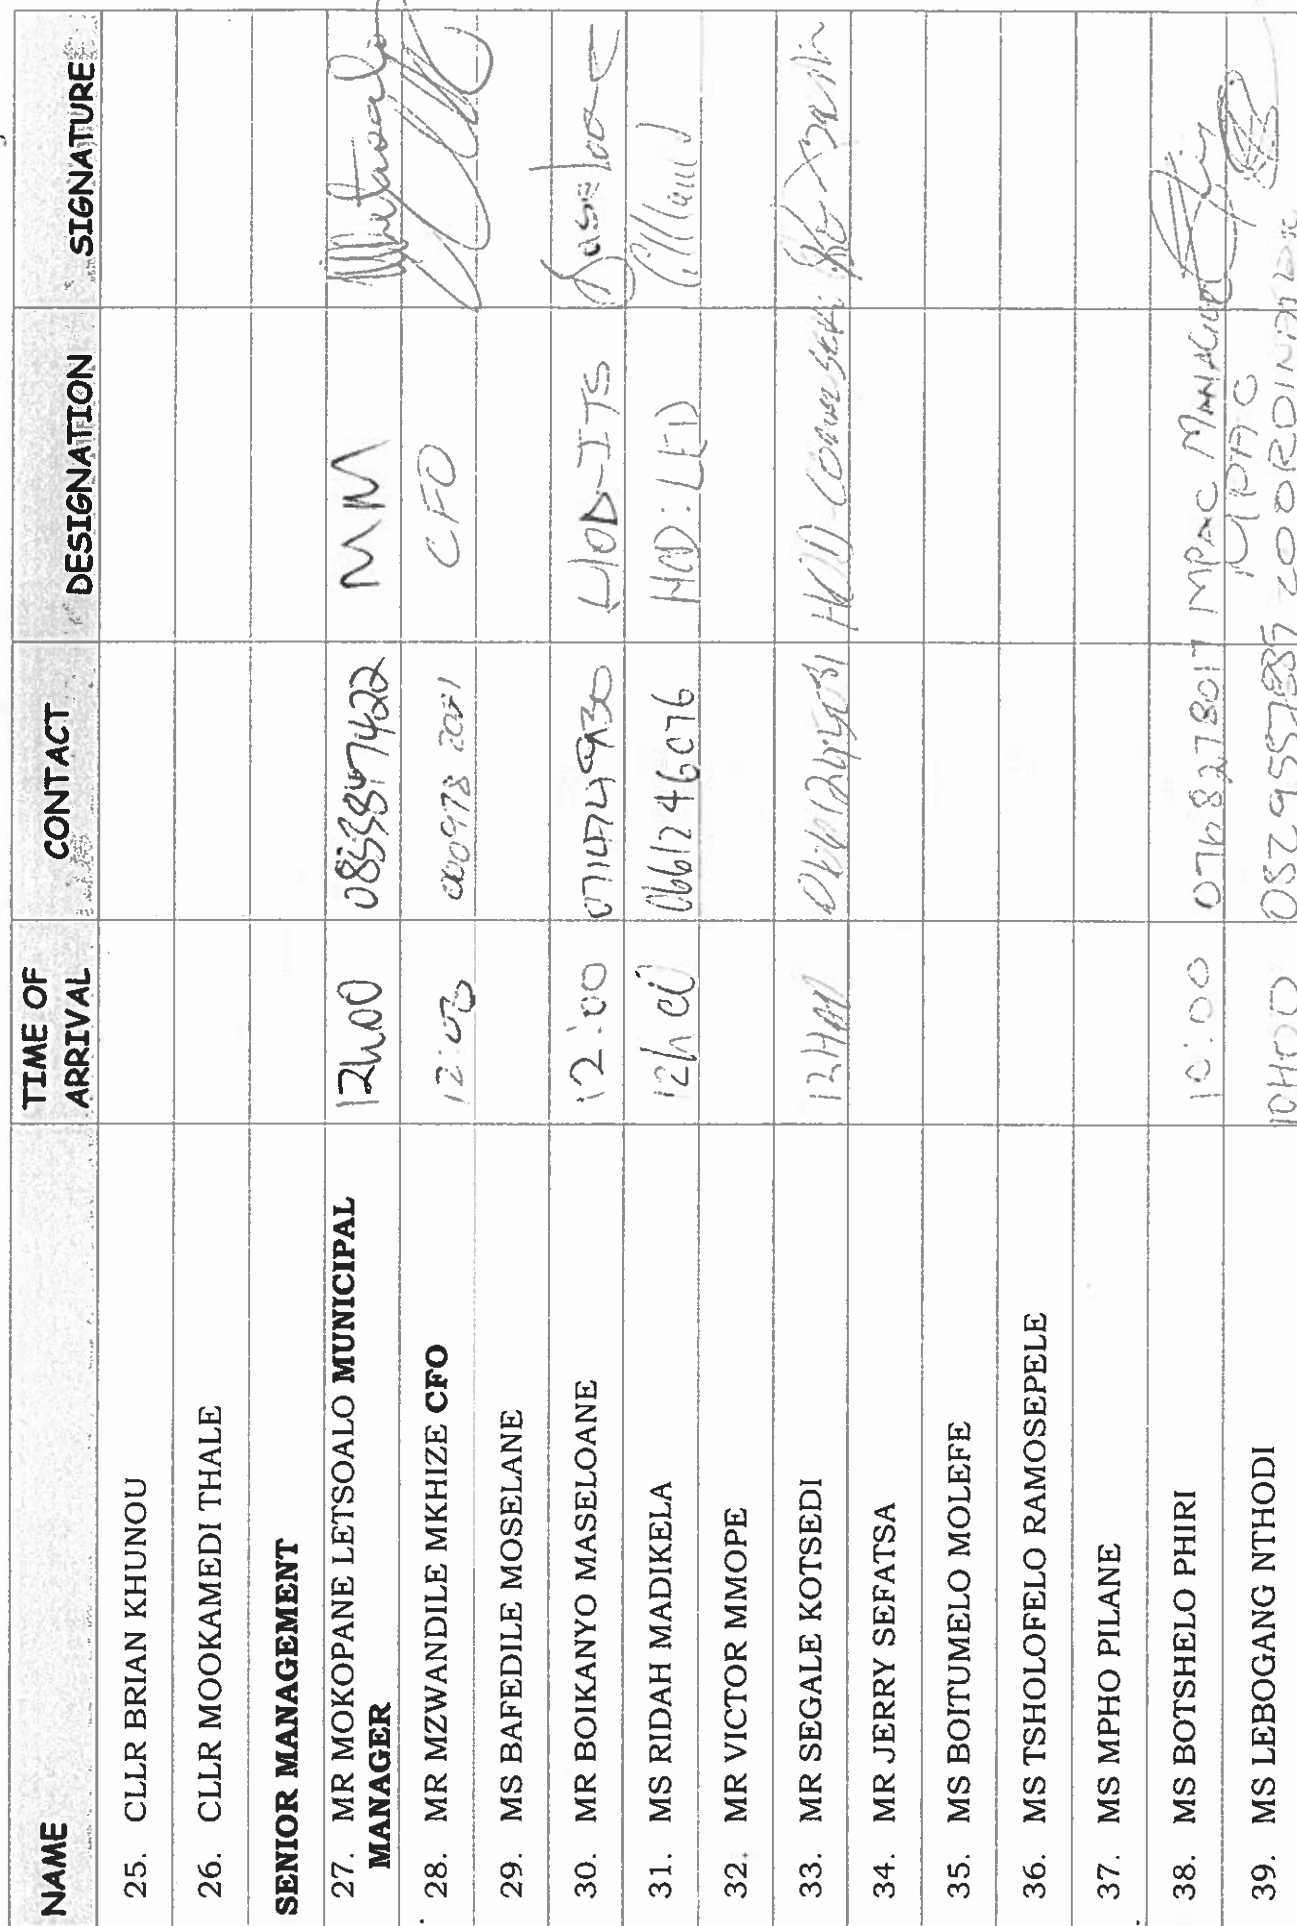 NAME TIME OF ARRIVAL CONTACT DESIGNATION SIGNATURE
25. CLLR BRIAN KHUNOU
26. CLLR MOOKAMEDI THALE
SENIOR MANAGEMENT
27. MR MOKOPANE LETSOALO MUNICIPAL MANAGER 12h00 MM
28. MR MZWANDILE MKHIZE CFO 12:00 CFO
29. MS BAFEDILE MOSELANE
30. MR BOIKANYO MASELOANE 12:00 0714749930 HOD-ITS
31. MS RIDAH MADIKELA 12h 0661246076 HOD: LED
32. MR VICTOR MMOPE
33. MR SEGALE KOTSEDI HOD
34. MR JERRY SEFATSA
35. MS BOITUMELO MOLEFE
36. MS TSHOLOFELO RAMOSEPELE
37. MS MPHO PILANE
38. MS BOTSHELO PHIRI 10:00 0768278017 MPAC MANAGER
39. MS LEBOGANG NTHODI 10H00 MPAC COORDINATOR